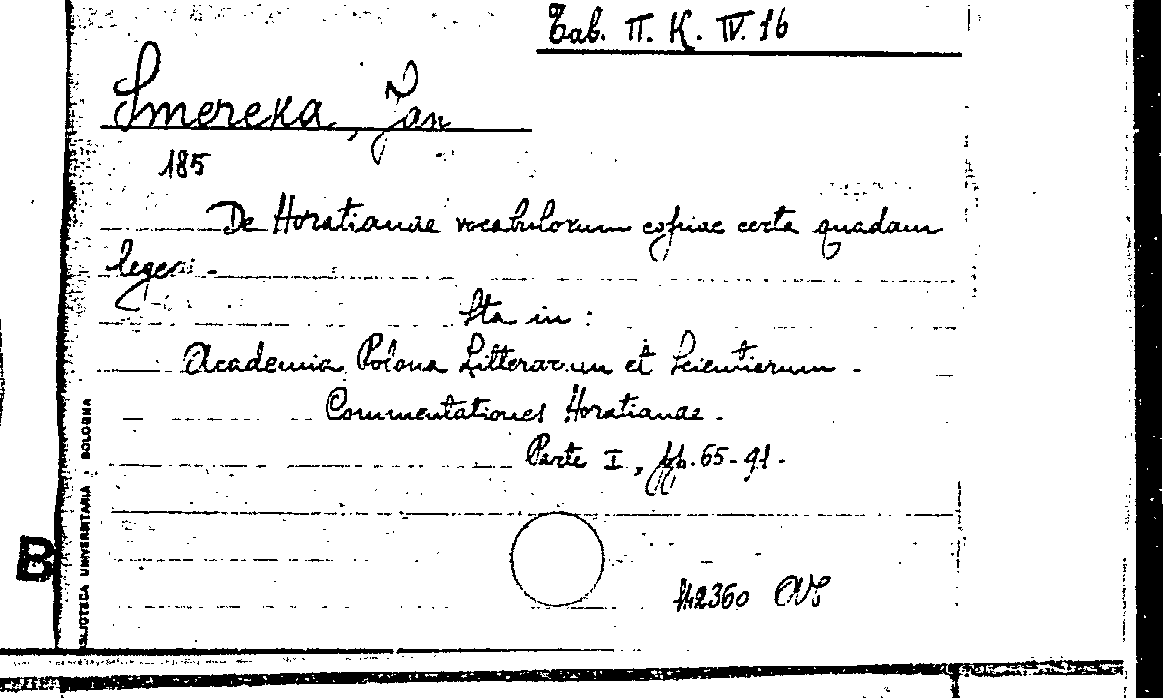 Tab. II. K. IV. 16
Smereka, Jan
185
De Horatianae vocabulorum copiae certa quadam
lege.
Sta in:
Academia Polona Litterarum et Scientiarum.
Commentationes Horatianae.
Parte I, pp. 65-91.
BIBLIOTECA UNIVERSITARIA BOLOGNA
B
142360